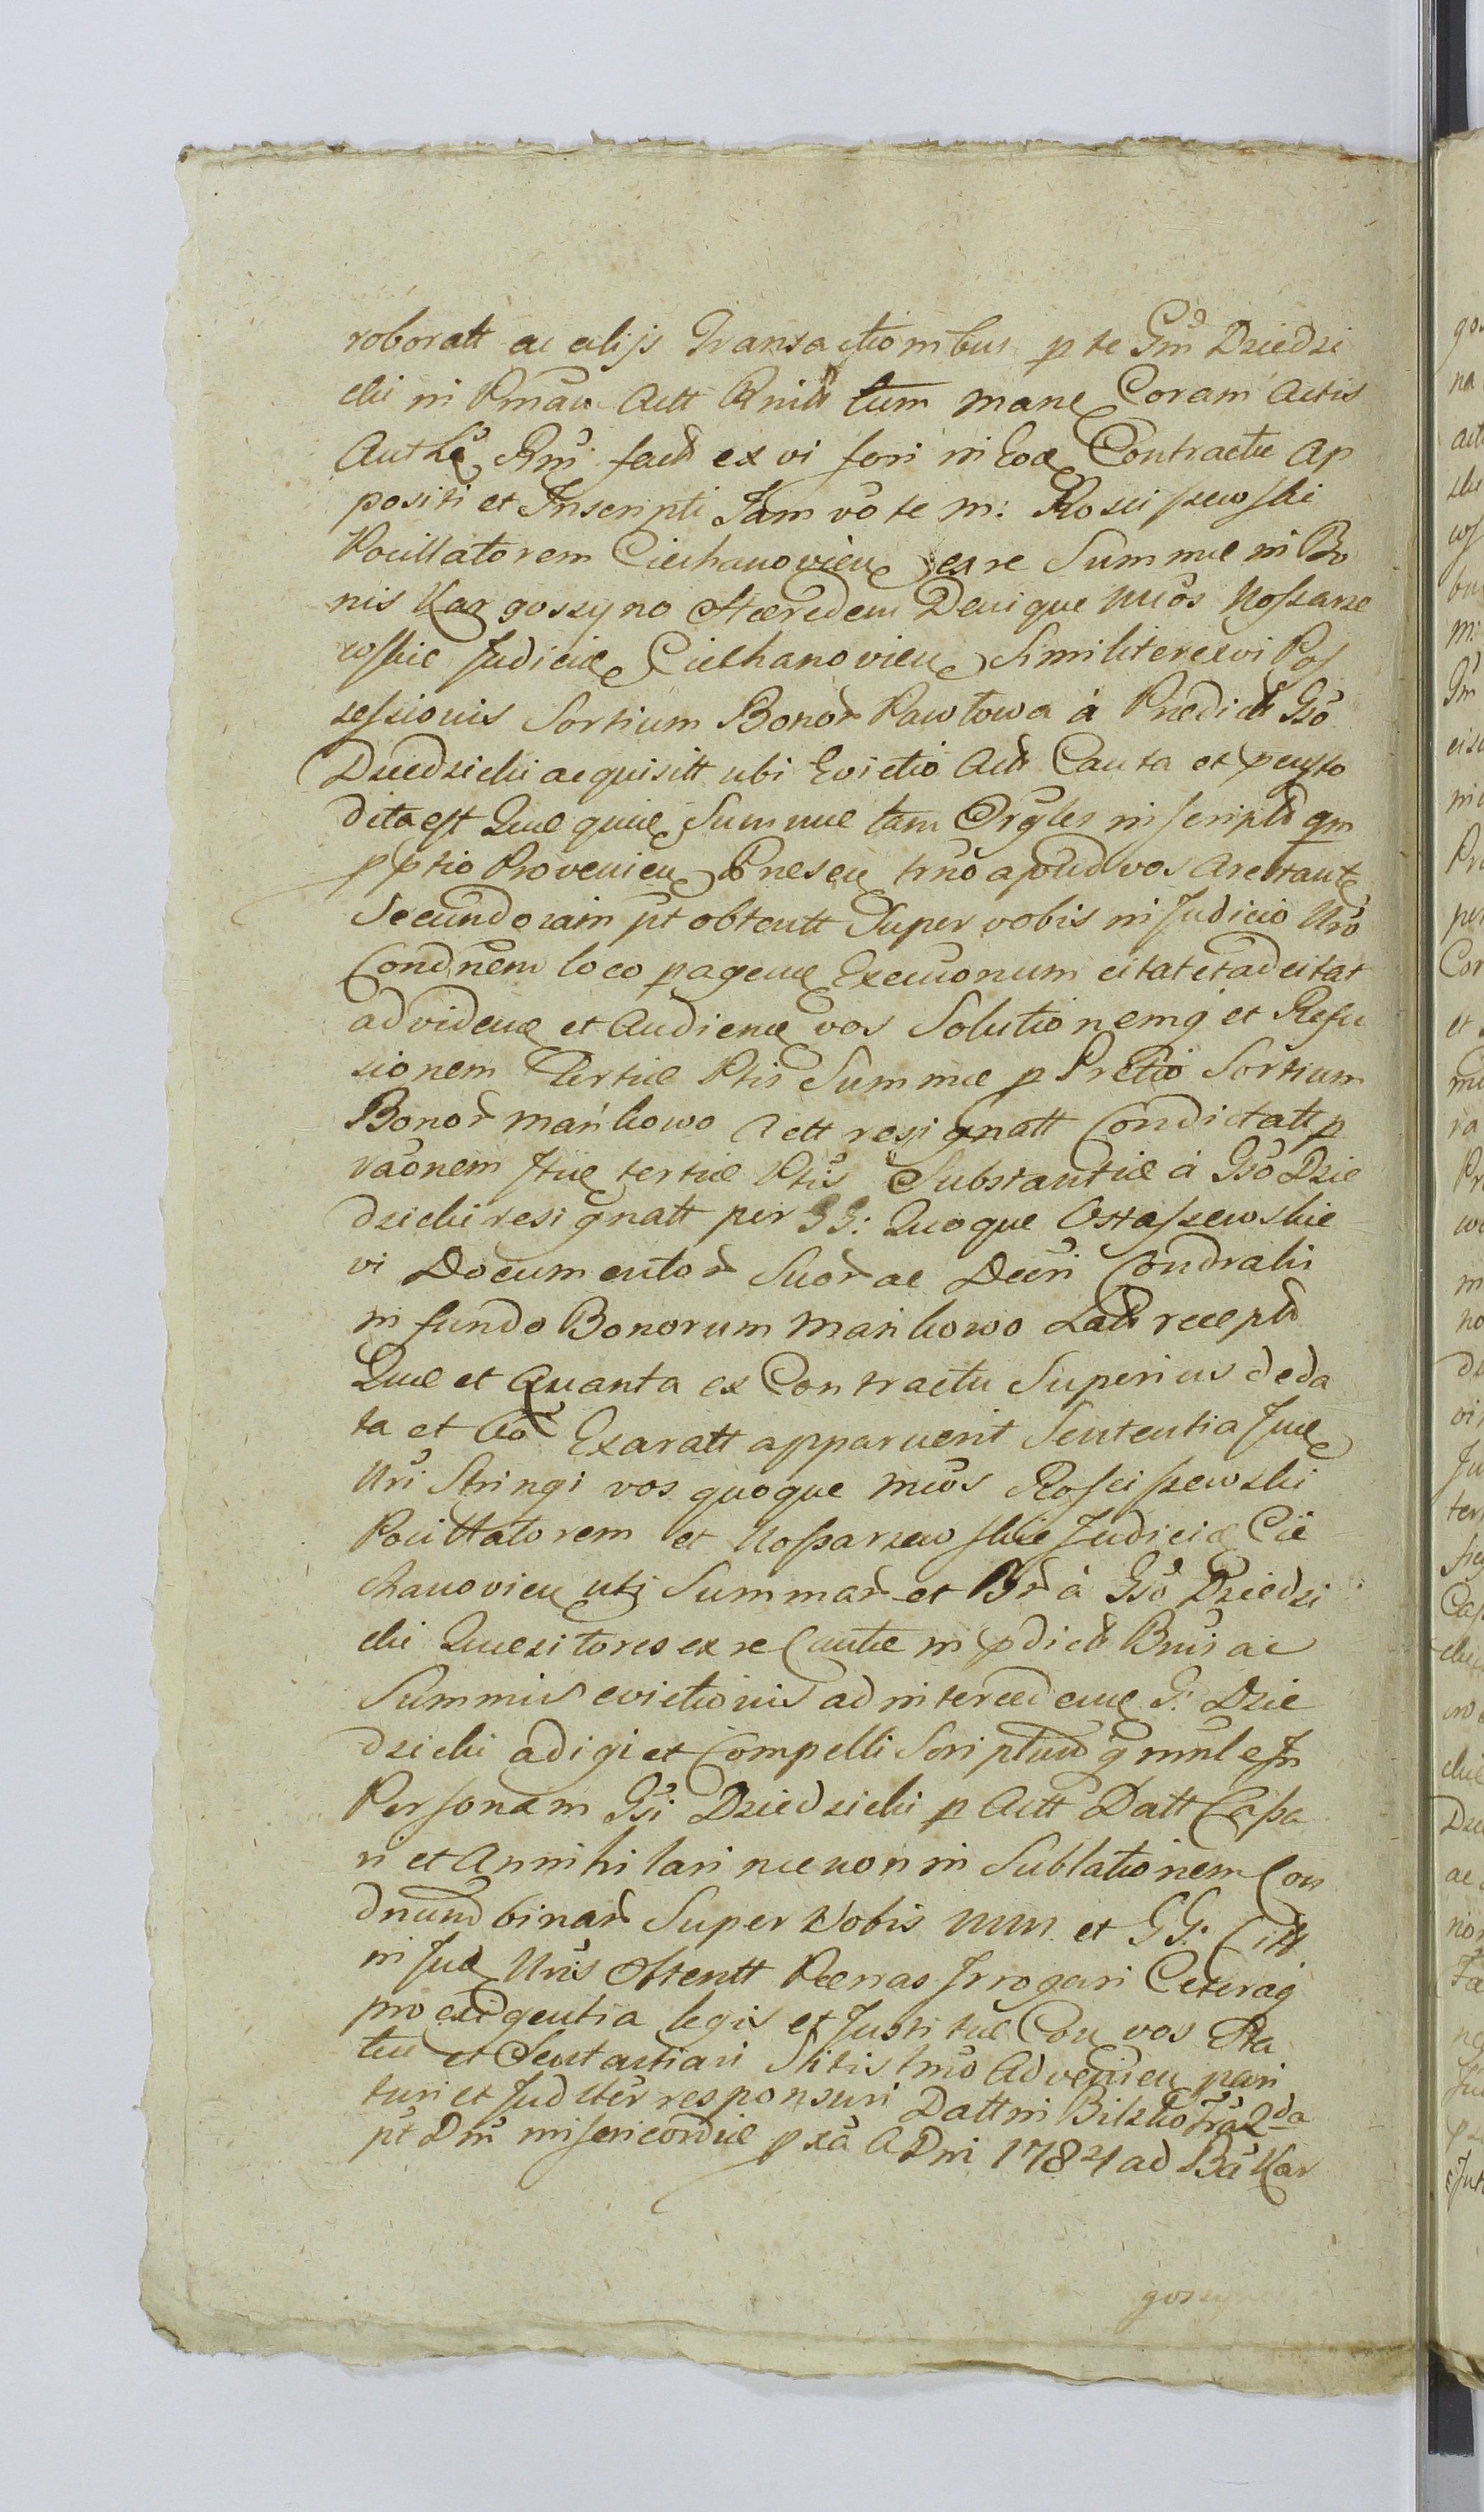 roboratt ac alijs Transactionibus p te Gm Dziedzi
cki in Pmav Actt Rnitt tum mane Coram Actis
Authē Rmi fact ex vi fori in Eod Contractu ap
positi et Inscripti Jam vō te M: Rosciszewski
Pocillatorem Ciechanovien ex re Summæ in Bo
nis Kargoszyno Hæredem Denique MMos Nosarze
wskie Judicicæ Ciechanovien Similiter ex vi Pos
sessionis Sortium Bonor Pawłowa à Prædict Gso
Dziedzicki acquisitt ubi Evictio Act Cauta et pcusto
dita est Quæ quæ Summæ tam Orgles inscript qm
pptio Provenien Præsen trno apud vos Arestant
Secundo zaim pt obtentt Super vobis in Judicio Nro
Condnem loco pagenæ Execuonum citat et adcitat
ad videnæ et Audienæ vos Solutionemq et Refu
sionem Tertiæ Ptis Summæ p Pretio Sortium
Bonor Mańkowo Actt resignatt Condictatt p
raonem Itiæ tertiæ Ptis Substantiæ à Gso Dzie
dzicki resignatt per GG: Quoque Ostaszewskie
vi Documentor Suor ac Decri Condralis
in fundo Bonorum Mańkowo Lati recept
Quæ et Quanta ex Contractu Superius deda
ta et Exaratt apparuerit Sententia Jud
Nri Stringi vos quoque MMos Rosciszewski
Pocillatorem et Nosarzewskie Judicicæ Cie
chanovien uti Summar et Br à Gso Dziedzi
cki Quæsitores ex re Cautæ in pdict Bnis ac
Summis evictionis ad intercedenæ G: Dzie
dzicki adigi et Compelli Scriptum q nulle In
Personam Gsi Dziedzicki p Actt Datt Cassa
ri et Annihilari nec non in Sublationem Con
dnum binar Super Vobis MM et GG. Citt
in Jud Nris Obtentt Pænas Irrogari Ceteraq
pro exigentia legis et Justitiæ Con vos Sta
tui et Sententiari Sitis trmo Advenien pari
turi et Judliter responsuri Datt in Bilsko Fria 2da
pt Dm misericordiæ pxa A Dni 1784 ad Ba Kar
goszyn